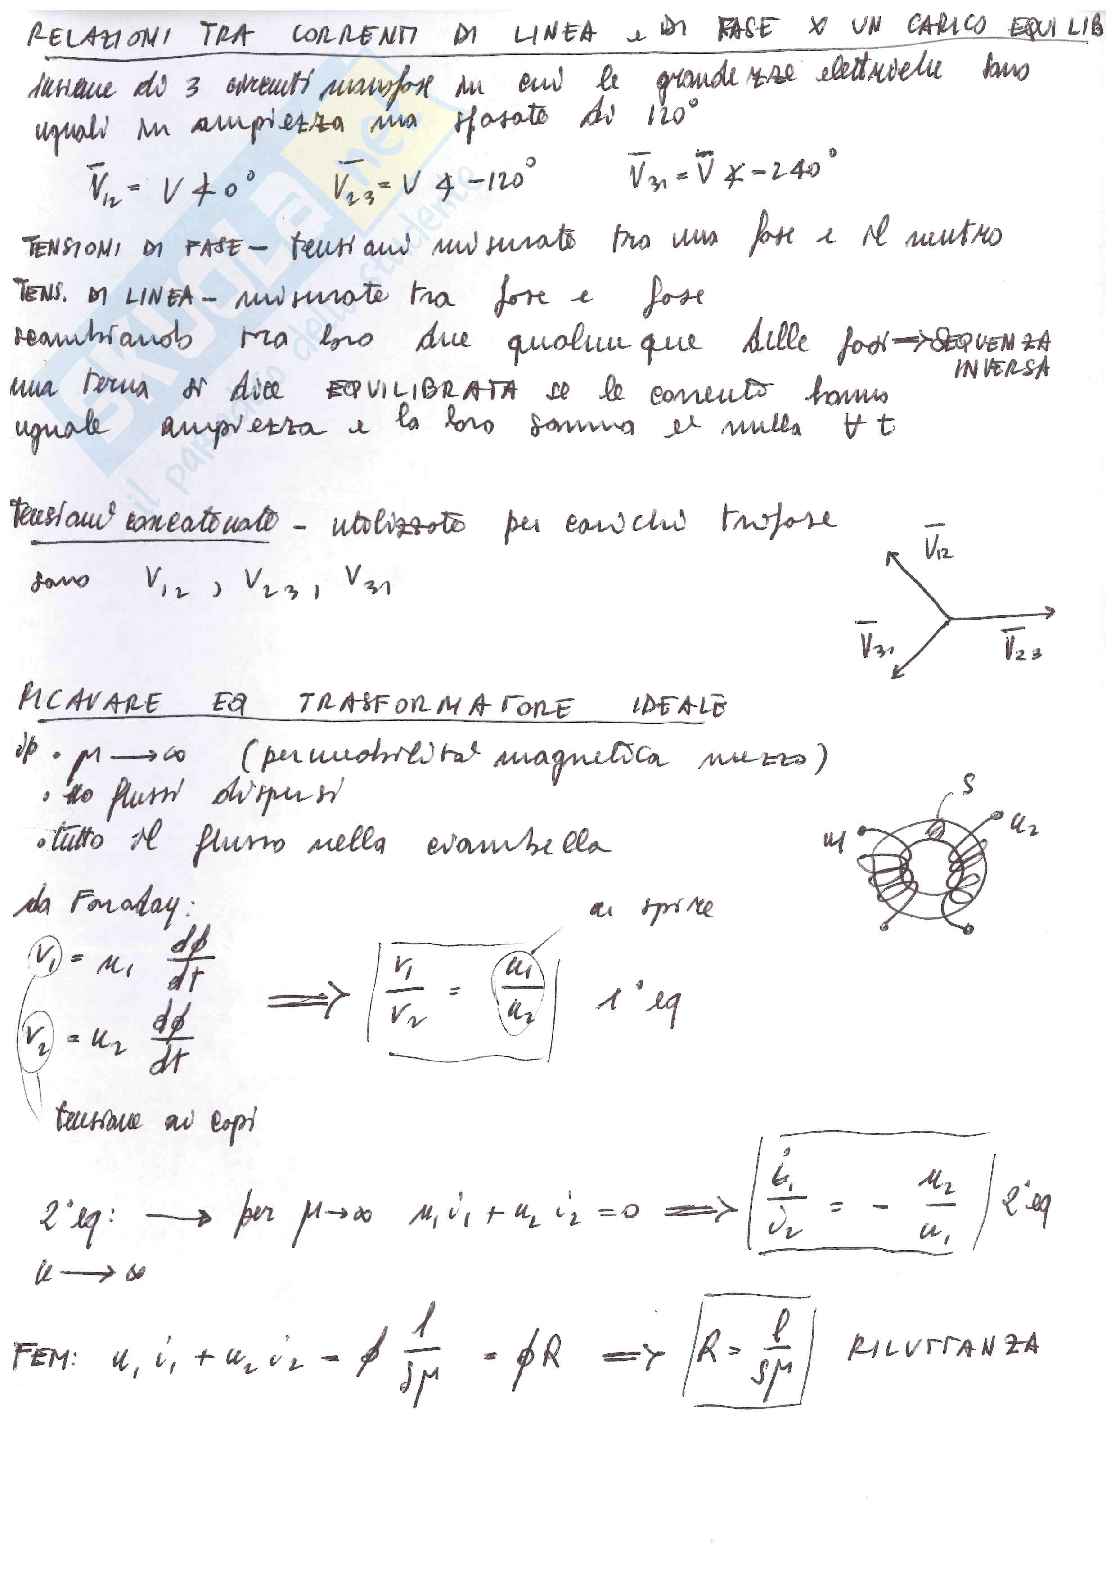 RELAZIONI TRA CORRENTI DI LINEA e DI FASE x UN CARICO EQUILIB
insieme di 3 circuiti monofase in cui le grandezze elettriche sono
uguali in ampiezza ma sfasate di 120°
V̄12 = V ∡ 0° V̄23 = V ∡ -120° V̄31 = V̄ ∡ -240°
TENSIONI DI FASE - tensioni misurate tra una fase e il neutro
TENS. DI LINEA - misurate tra fase e fase
scambiando tra loro due qualunque delle fasi => SEQUENZA
INVERSA
una terna si dice EQUILIBRATA se le correnti hanno
uguale ampiezza e la loro somma è nulla ∀ t
tensioni concatenate - utilizzate per carichi trifase
sono V12, V23, V31
V̄12
V̄31
V̄23
RICAVARE EQ TRASFORMATORE IDEALE
ip • μ → ∞ (permeabilità magnetica mezzo)
• no flussi dispersi
• tutto il flusso nella ciambella
S
n1
n2
da Faraday:
n spire
v1 = n1 dϕ/dt
=> v1/v2 = n1/n2 1° eq
v2 = n2 dϕ/dt
tensione ai capi
2° eq: → per μ→∞ n1 i1 + n2 i2 = 0 => i1/i2 = - n2/n1 2° eq
μ → ∞
FEM: n1 i1 + n2 i2 = ϕ l/Sμ = ϕR => R = l/Sμ RILUTTANZA
SKUOLA.net
il paradiso dello studente